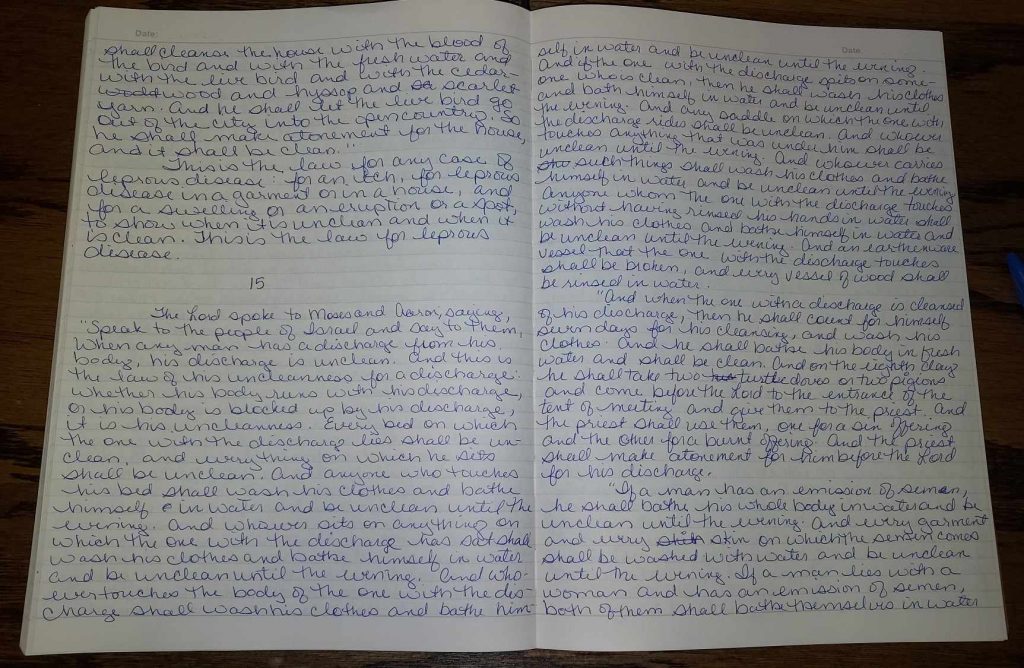 Date:
shall cleanse the house with the blood of
the bird and with the fresh water and
with the live bird and with the cedar-
wood and hyssop and scarlet
yarn. And he shall let the live bird go
out of the city into the open country. So
he shall make atonement for the house,
and it shall be clean."
This is the law for any case of
leprous disease: for an itch, for leprous
disease in a garment or in a house, and
for a swelling or an eruption or a spot,
to show when it is unclean and when it
is clean. This is the law for leprous
disease.
15
The Lord spoke to Moses and Aaron, saying,
"Speak to the people of Israel and say to them,
When any man has a discharge from his
body, his discharge is unclean. And this is
the law of his uncleanness for a discharge:
whether his body runs with his discharge,
or his body is blocked up by his discharge,
it is his uncleanness. Every bed on which
the one with the discharge lies shall be un-
clean, and everything on which he sits
shall be unclean. And anyone who touches
his bed shall wash his clothes and bathe
himself in water and be unclean until the
evening. And whoever sits on anything on
which the one with the discharge has sat shall
wash his clothes and bathe himself in water
and be unclean until the evening. And who-
ever touches the body of the one with the dis-
charge shall wash his clothes and bathe him-
Date:
self in water and be unclean until the evening.
And if the one with the discharge spits on some-
one who is clean, then he shall wash his clothes
and bath himself in water and be unclean until
the evening. And any saddle on which the one with
the discharge rides shall be unclean. And whoever
touches anything that was under him shall be
unclean until the evening. And whoever carries
such things shall wash his clothes and bathe
himself in water and be unclean until the evening
Anyone whom the one with the discharge touches
without having rinsed his hands in water shall
wash his clothes and bathe himself in water and
be unclean until the evening. And an earthenware
vessel that the one with the discharge touches
shall be broken, and every vessel of wood shall
be rinsed in water.
"And when the one with a discharge is cleansed
of his discharge, then he shall count for himself
seven days for his cleansing, and wash his
clothes. And he shall bathe his body in fresh
water and shall be clean. And on the eighth day
he shall take two turtledoves or two pigeons
and come before the Lord to the entrance of the
tent of meeting and give them to the priest. And
the priest shall use them, one for a sin offering
and the other for a burnt offering. And the priest
shall make atonement for him before the Lord
for his discharge.
"If a man has an emission of semen,
he shall bathe his whole body in water and be
unclean until the evening. And every garment
and every skin on which the semen comes
shall be washed with water and be unclean
until the evening. If a man lies with a
woman and has an emission of semen,
both of them shall bathe themselves in water